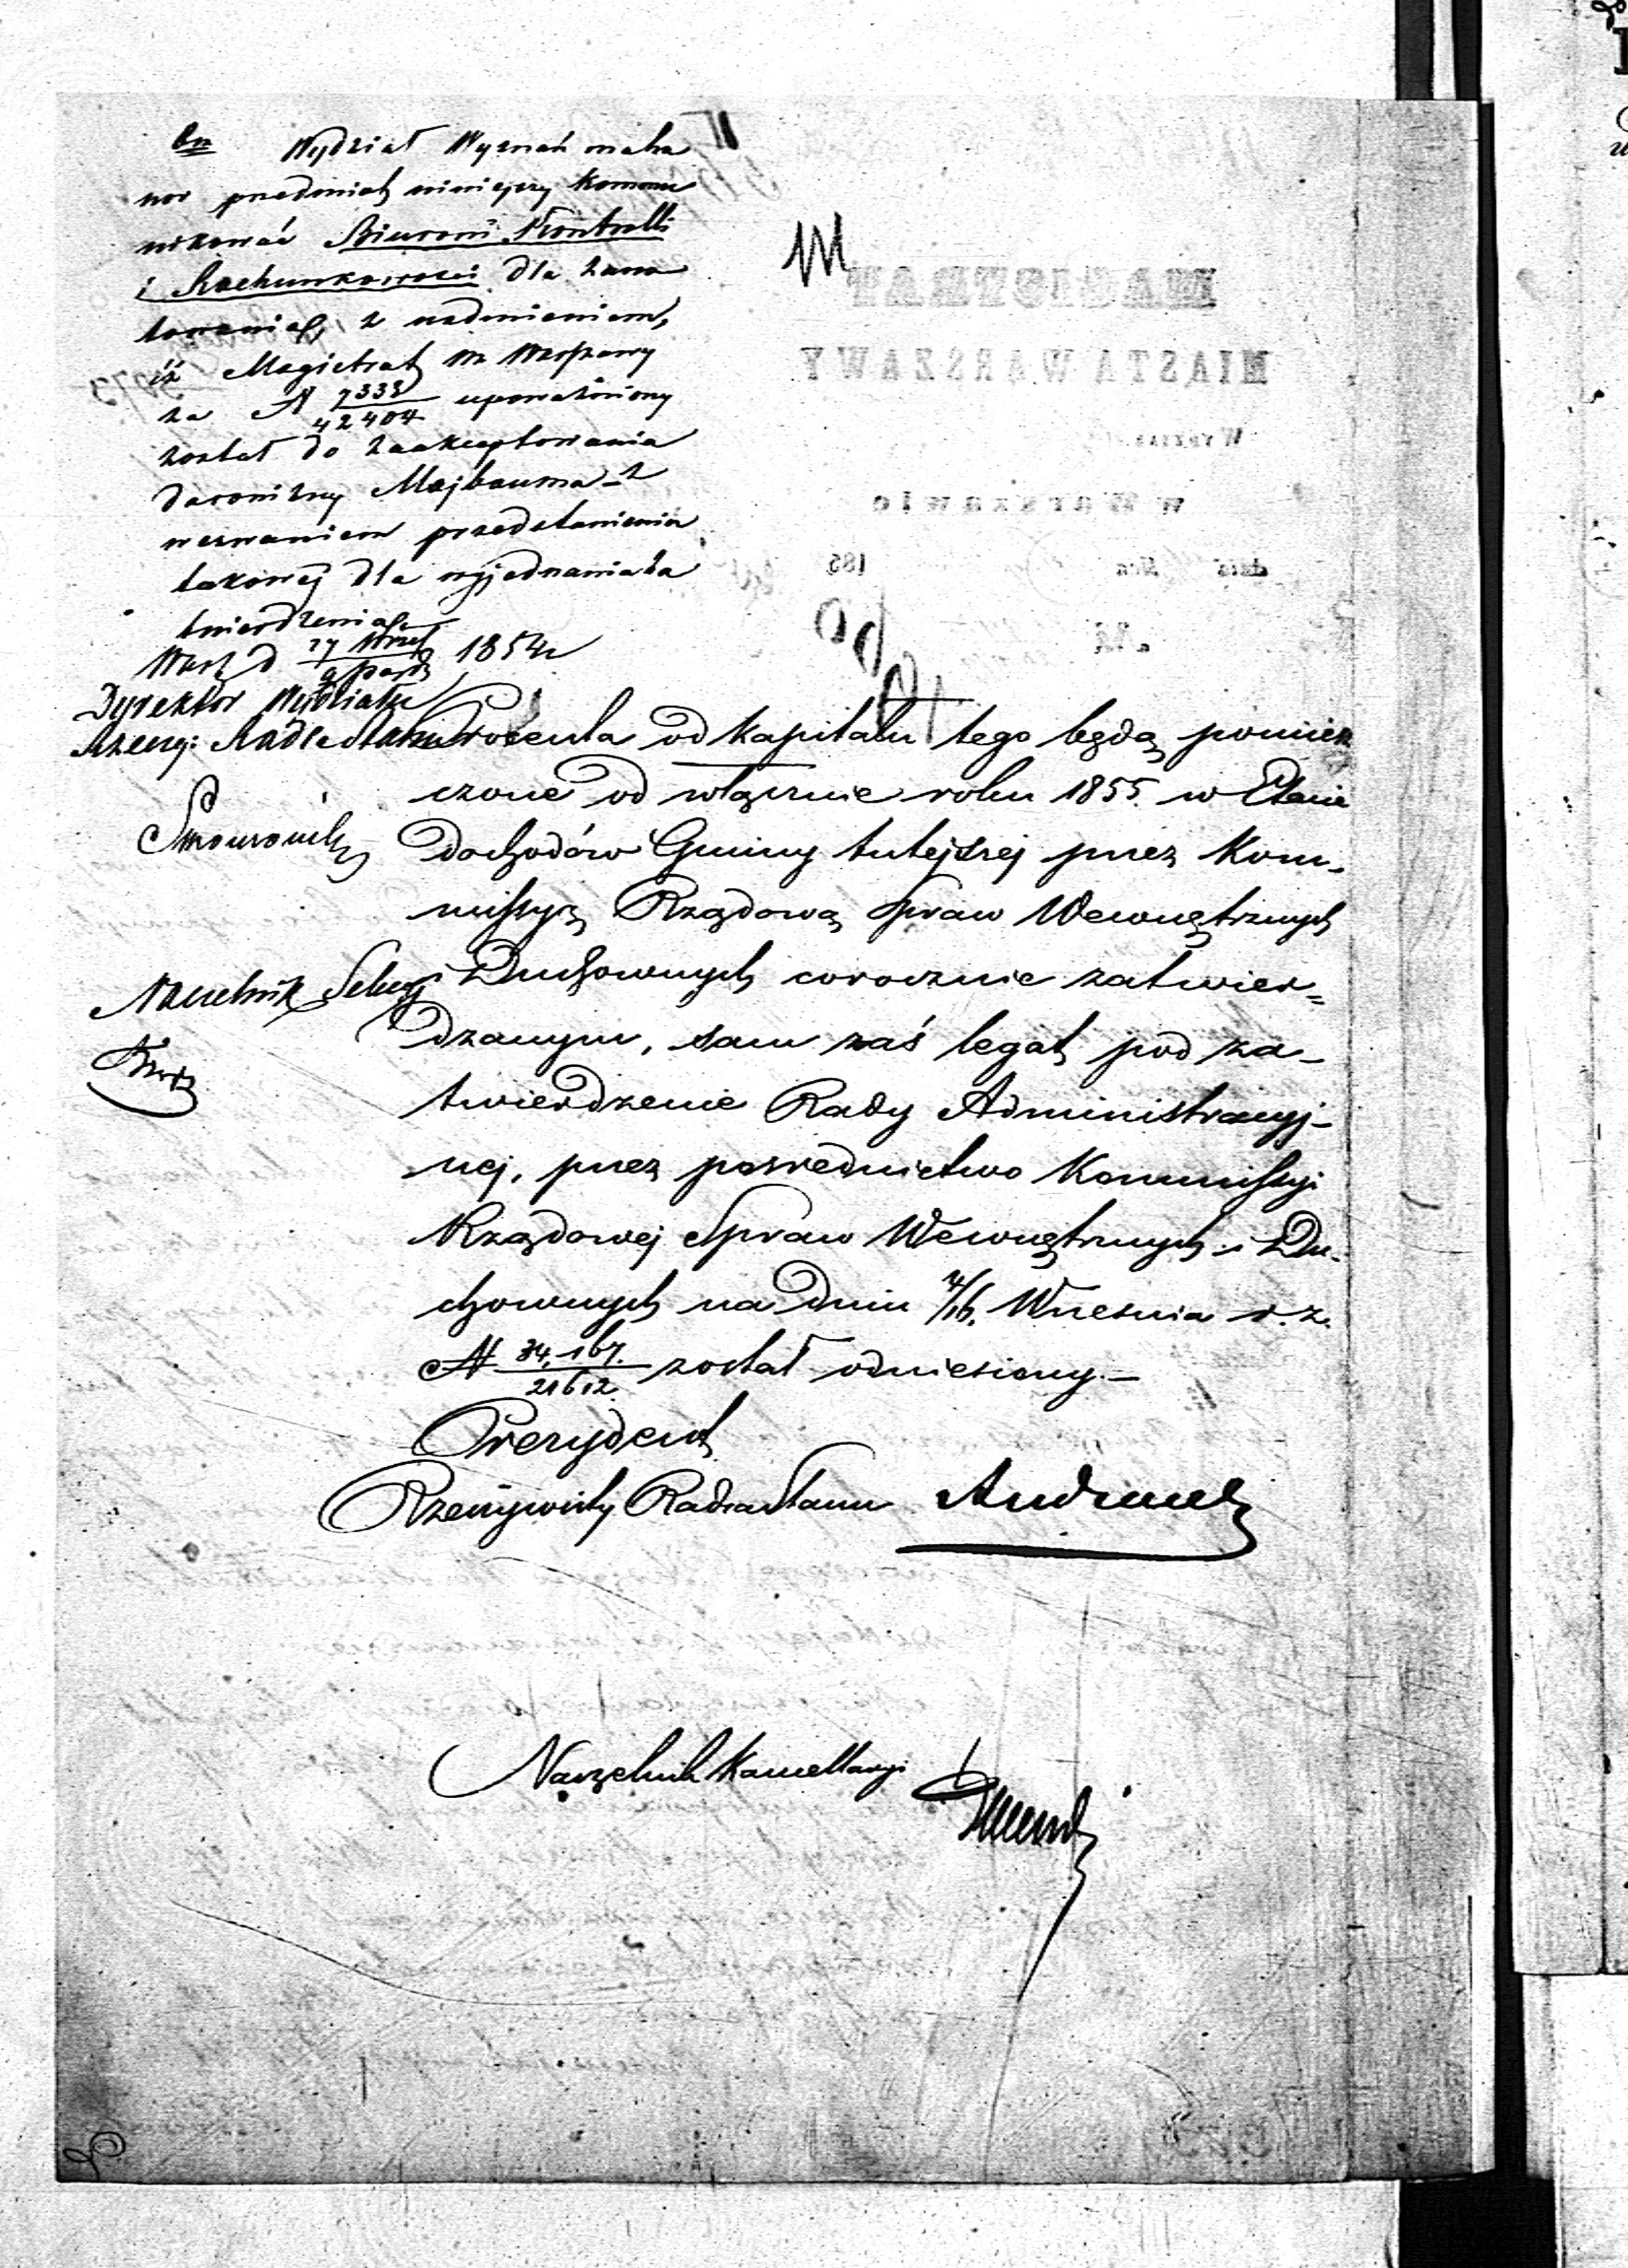 Wydział Wyznań ma ho
nor przedmiot niniejszy kommu
nikować Biurowi Kontrolli
i Rachunkowości dla zano
towania, z nadmieniem,
iż Magistrat m Warszawy
za N 7332/42404 upoważniony
został do zaakceptowania
darowizny Majbauma z
wezwaniem przedstawienia
takowej dla wyjednania za
twierdzenia
Warsz d 27 Wrześ/9 Paźdz 1854 r
Dyrektor Wydziału
Rzeczy: Radca Stanu
Naczelnik Sekcyi
M
MAGISTRAT
MIASTA WARSZAWY
w Warszawie
dnia 185
Procenta od kapitału tego będą pomiesz
czone od włącznie roku 1855. w Etacie
dochodów Gminy tutejszej przez Kom-
missyą Rządową Spraw Wewnętrznych
i Duchownych corocznie zatwier=
dzanym, sam zaś legat pod za-
twierdzenie Rady Administracyj-
nej, przez pośrednictwo Kommissyi
Rządowej Spraw Wewnętrznych i Du-
chownych na dniu 4/16. Września r. z.
N 34,167./21612. został odniesiony.—
Prezydent
Rzeczywisty Radca Stanu Andrault
Naczelnik Kancellaryi